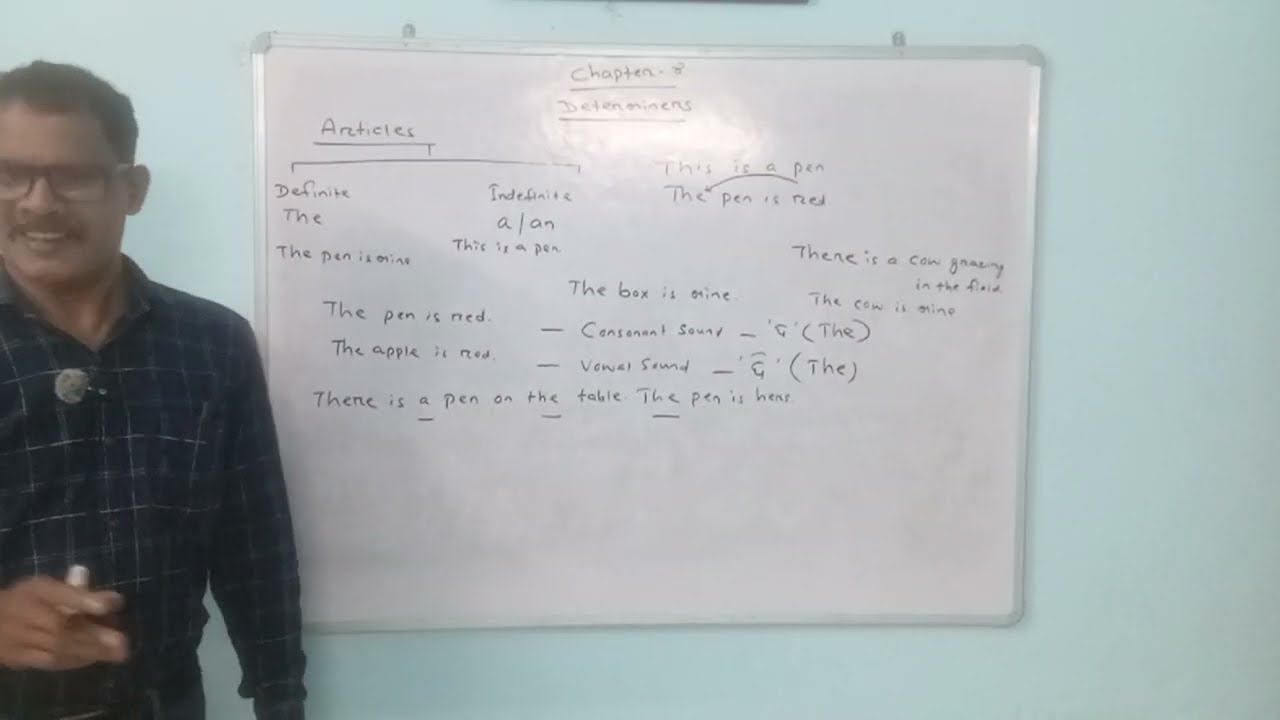 Chapter-8
Determiners
Articles
Definite
The
The pen is mine
Indefinite
a/an
This is a pen
This is a pen
The pen is red
There is a cow grazing
in the field
The cow is mine
The box is mine.
The pen is red.
— Consonant Sound — ' ' (The)
The apple is red.
— Vowel Sound — ' ' (The)
There is a pen on the table. The pen is hers.